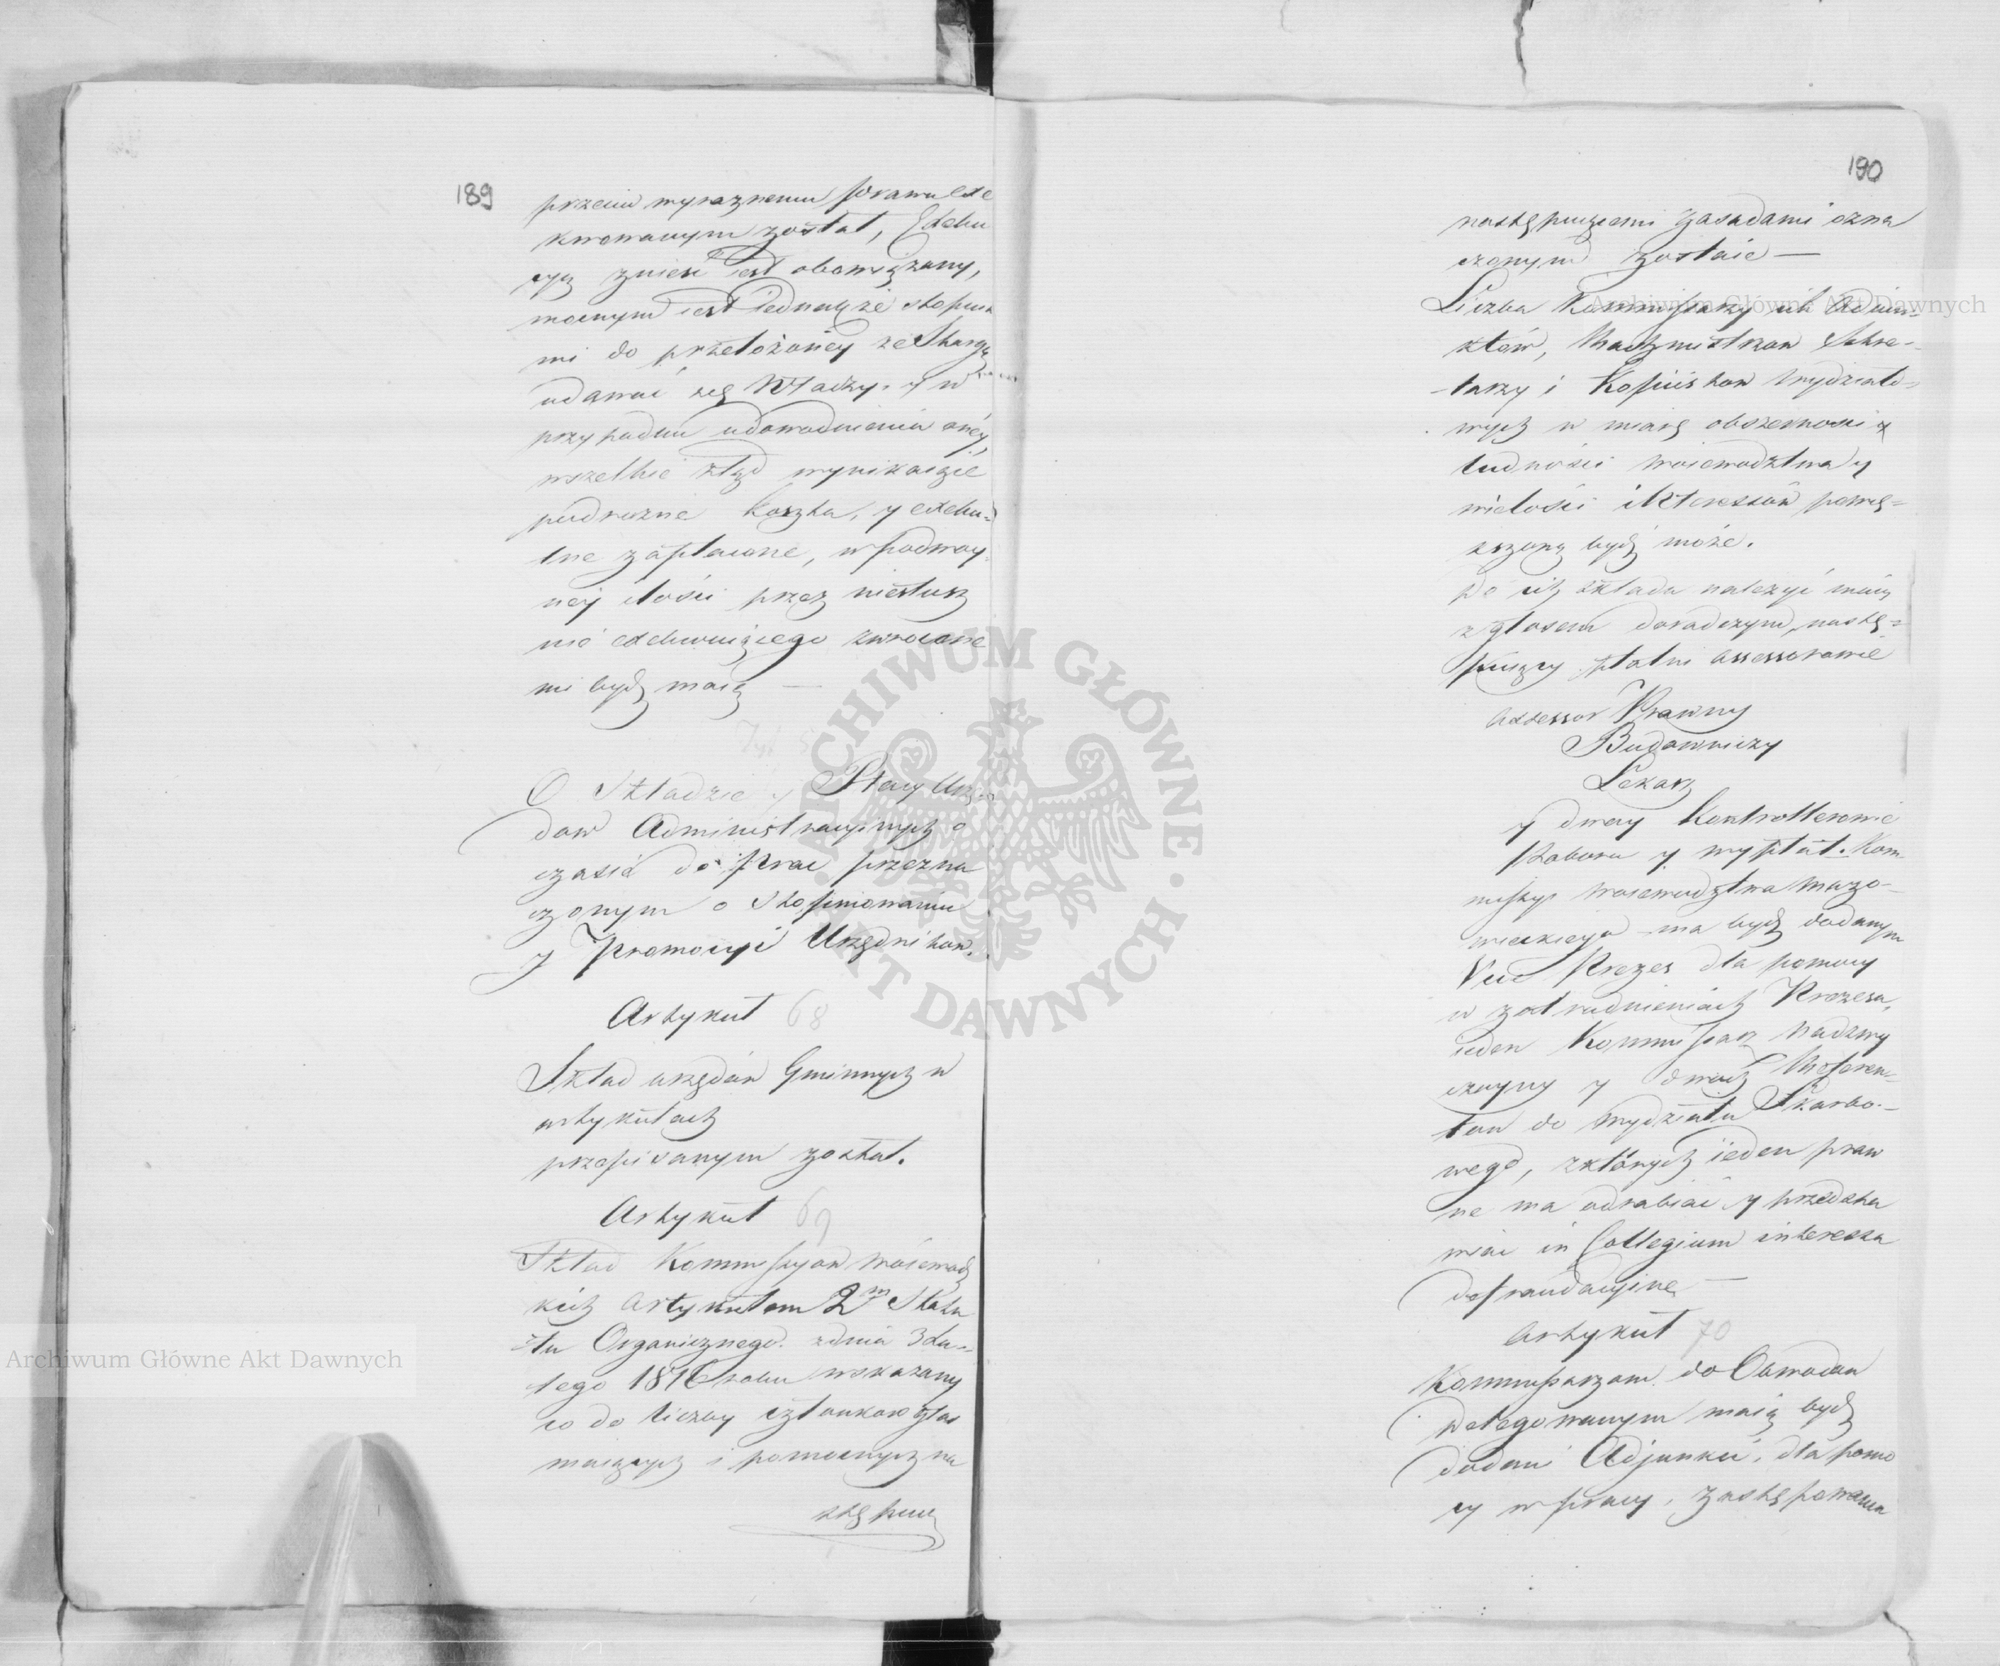 189
przeciw wyraznemu prawu exe
kwowanym został, Exeku
cyą znieść iest obowiązany,
mocnym iest iednakże stopnia
mi do przełożoney ze Skargą
udawać się Władzy, y w
przypadku udowodnienia oney,
wszelkie ztąd wynikaiące
podrozne koszta, y exeku=
tne zapłacone, w podwoy
ney ilości przez niesłusz
nie exekwuiącego zwrocone
mi bydź maią —
O Składzie y Płacy Urzę
dow Administracyinych o
czasie do Prac przezna
czonym o Stopniowaniu
y Promocyi Urzędnikow.
Artykuł 68
Skład urzędów Gminnych w
artykułach
przepisanym został.
Artykuł 69
Skład Kommissyow Woiewodz
kich Artykułem 2m Statu
tu Organicznego z dnia 3 Lu=
tego 1816 roku wskazany
co do liczby członkow głos
maiących i pomocnych na
stępuią
190
następuiącemi zasadami ozna
czonym zostaie —
Liczba Kommissarzy ich Adiun=
któw, Rachmistrzow Sekre=
tarzy i Kopiistow Wydziało=
wych w miarę obszerności y
ludności Woiewodztwa y
wielości interessów powię=
kszoną bydź może.
Do ich składu należyć maią
z głosem doradczym, nastę=
puiący płatni Assessorowie
Assessor Prawny
Budowniczy
Lekarz
y dway Kontrollerowie
Poboru y wypłat. Kom
missyi Woiewodztwa Mazo=
wieckiego ma bydź dodanym
Vice Prezes dla pomocy
w zatrudnieniach Prezesa,
ieden Kommissarz Nadzwy
czayny y dwóch Referen=
tow do Wydziału Skarbo=
wego, z których ieden praw
ne ma odrabiać y przedsta
wiać in Collegium interessa
defraudacyine —
Artykuł 70
Kommissarzom do Obwodow
Delegowanym maią bydź
dodani Adjunkci, dla pomo
cy w pracy, zastępowania
Archiwum Główne Akt Dawnych
Archiwum Główne Akt Dawnych
ARCHIWUM GŁÓWNE · AKT DAWNYCH ·